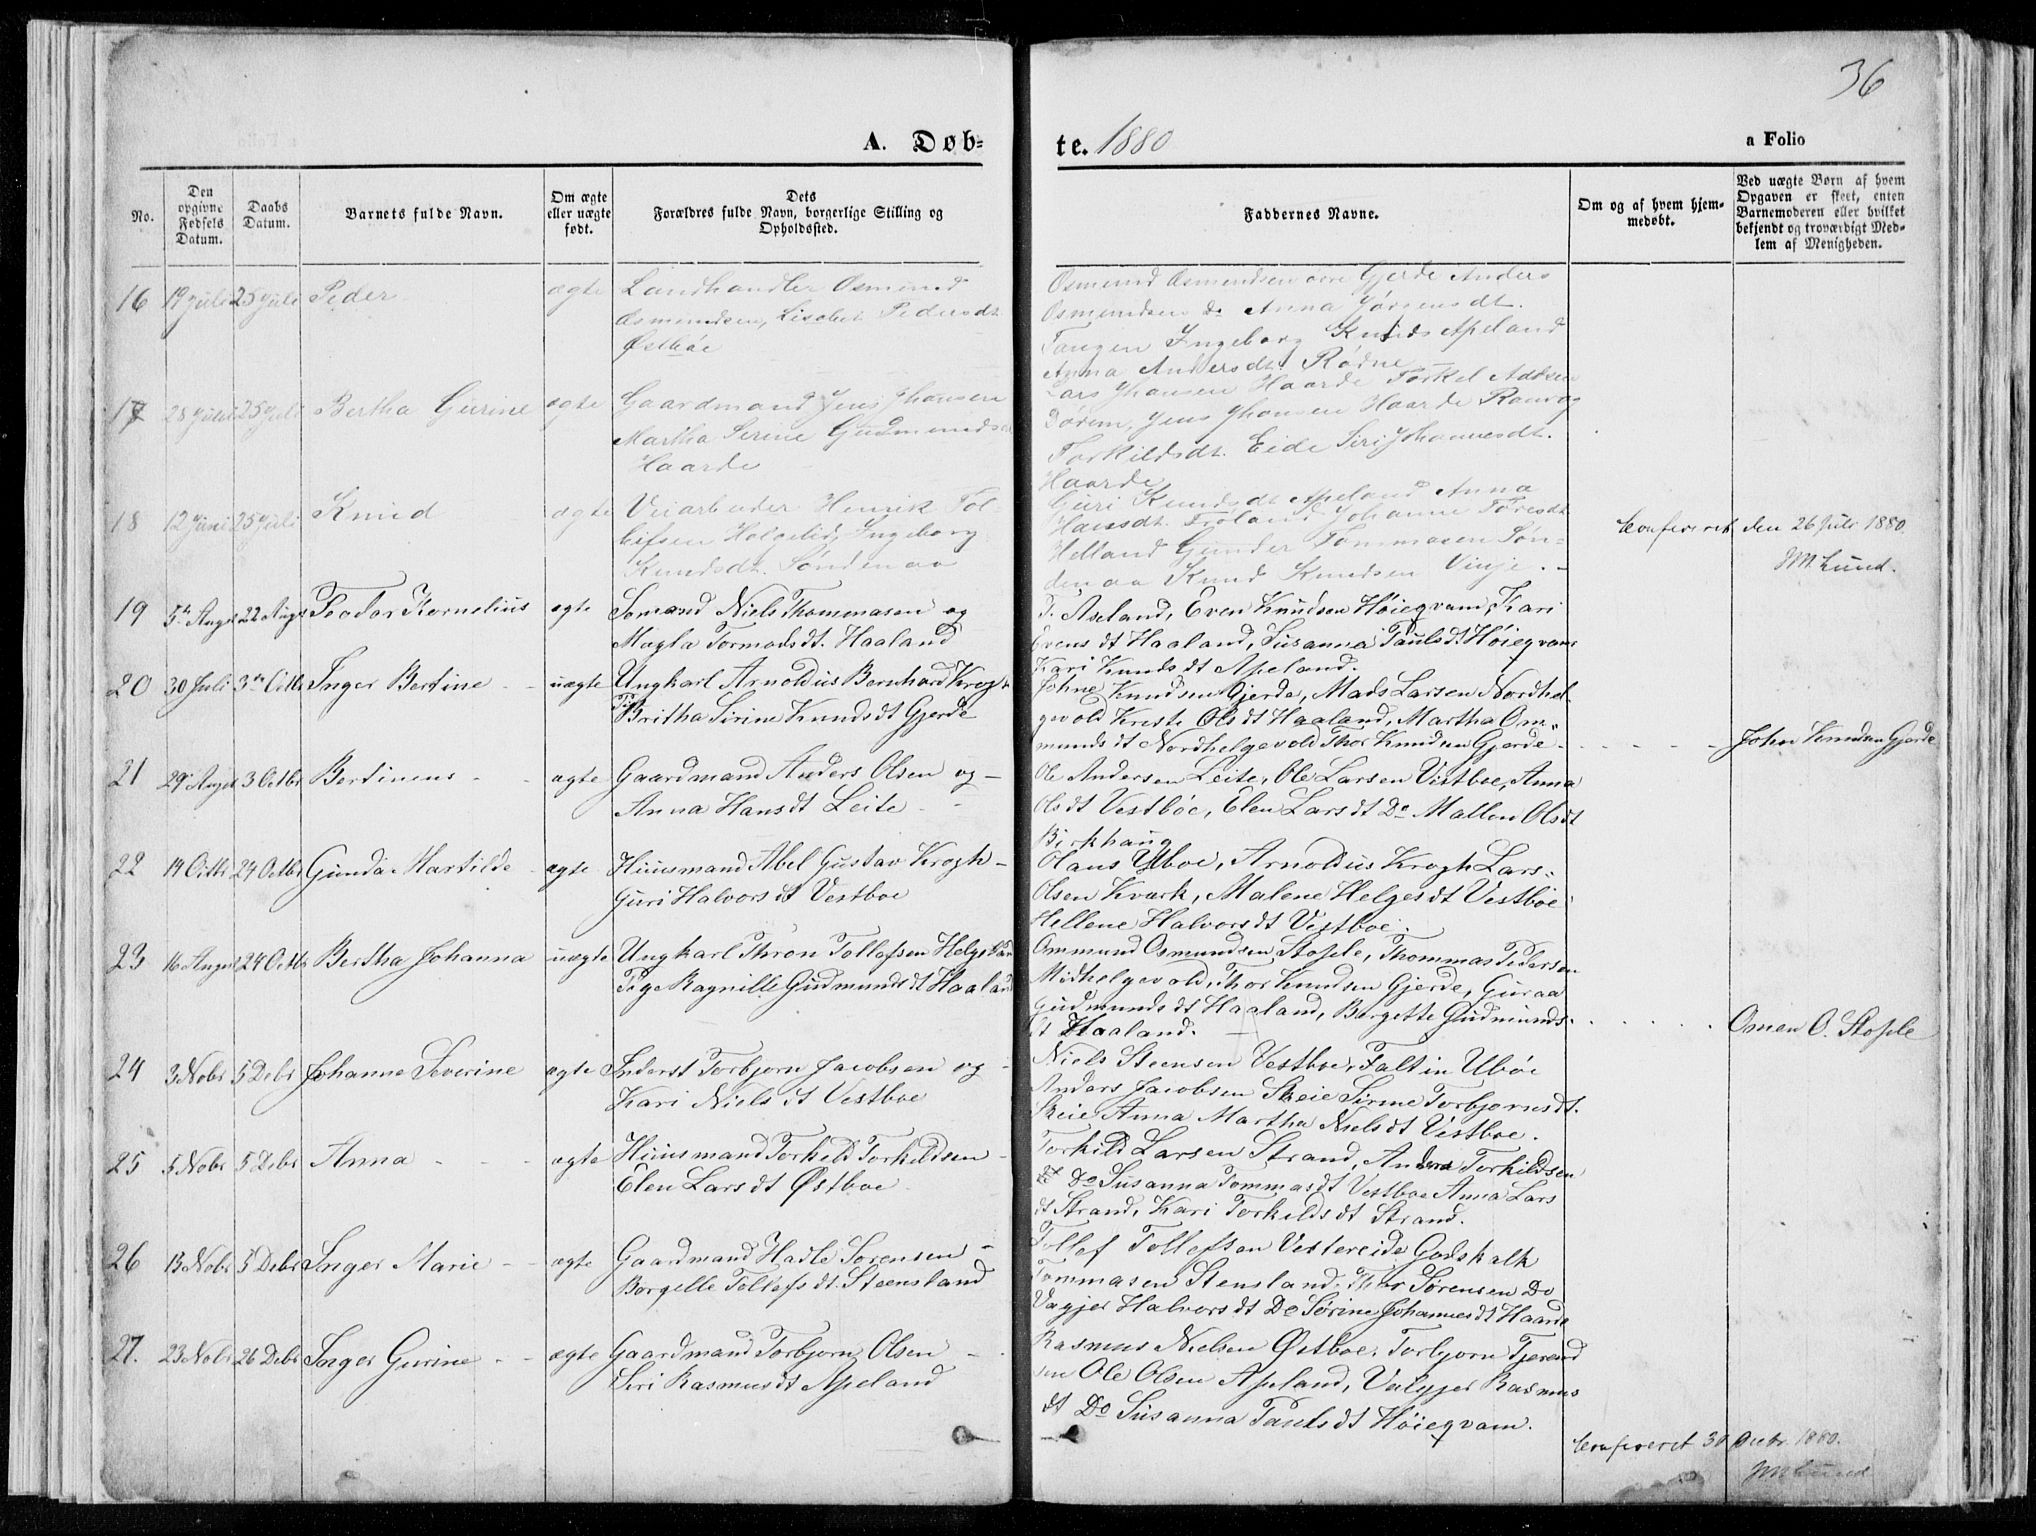 36
A. Døbte. 1880
a Folio
No.
Den opgivne Fødsels Datum.
Daabs Datum.
Barnets fulde Navn.
Om ægte eller uægte født.
Dets Forældres fulde Navn, borgerlige Stilling og Opholdssted.
Faddernes Navne.
Om og af hvem hjemmedøbt.
Ved uægte Børn af hvem Opgaven er skeet, enten Barnemoderen eller hvilket bekjendt og troværdigt Medlem af Menigheden.
16 19 Juli 25 Juli Peder ægte Landhandler Osmund
Osmundsen, Lisabet Pedersdt
Østbøe
Osmund Osmundsen Gjerde Anders
Osmundsen Do Anna Jørgensdt.
Tangen Ingeborg Knudsdt Apeland
Anna Andersdt. Rødne
17 28 Juni 25 Juli Bertha Gurine ægte Gaardmand Jens Jhansen
Martha Serine Gudmundsdt
Haarde
Lars Jhansen Haarde Torkel
Dørem, Jens Jhansen Haarde Ranvog
Torkildsdt. Eide Siri Johannesdt.
Haarde
18 12 Juni 25 Juli Knud ægte Veiarbeider Henrik Tol-
lefsen Helgelid, Ingeborg
Knudsdt. Søndenaa
Guri Knudsdt Apeland Anna
Hansdt. Frøland Johanne Toresdt
Helland Gunder Tommasen Søn-
denaa Knud Knudsen Vinje. -
Confereret den 26 Juli 1880
JM Lund.
19 5te Augst 22 Augst Teodor Kornelius ægte Sømand Niels Thommasen og
Magla Tormodsdt. Haaland
T. Apeland, Even Knudsen Høiegvam, Kari
Evensdt Haaland, Susanna Paulsdt Høiegvam
Kari Knudsdt Apeland.
20 30 Juli 3die Octbr Inger Bertine - - uægte Ungkarl Arnoldius Bernhard Krogh
Pig Britha Sirine Knudsdt Gjerde
Johne Knudsen Gjerde, Mads Larsen Nordhel-
gevold Kreste Olsdt Haaland, Martha Om-
mundsdt Nordhelgevold Thor Knudsen Gjerde - - - - - John Knudsen Gjerde
21 29 Augst 3 Octbr Bertinius - - ægte Gaardmand Anders Olsen og -
Anna Hansdt Leite - -
Ole Andersen Leite, Ole Larsen Vestboe, Anna
Olsdt Vestbøe, Elen Larsdt Do Mallen Olsdt
Birkhaug
22 14 Octbr 24 Octbr Gunda Martilde - ægte Huusmand Abel Gustav Krogh -
Guri Halvorsdt Vestboe
Olaus Ubøe, Arnoldus Krogh Lars-
Olsen Kvark, Malene Helgesdt Vestbøe
Hellene Halvorsdt Vestboe.
23 16 Augst 24 Octbr Bertha Johanna - uægte Ungkarl Thron Tollafsen Helgeland
Pige Ragnille Gudmundsdt Haaland
Ommund Osmundsen Stople, Thommas Pedersen
Midthelgevold, Thor Knudsen Gjerde, Guraa
Gudmundsdt Haaland, Borgette Gudmunds-
dt Haaland. - - - - - Omen O. Stople
24 3 Nobr 5 Debr Johanne Severine ægte Inderst Torbjorn Jacobsen og
Kari Nielsdt Vestboe
Niels Steensen Vestboe, Faltin Ubóe
Anders Jacobsen Skeie Sirine Torbjornsdt.
Skeie Anna Martha Nielsdt Vestboe.
25 5 Nobr 5 Debr Anna - - - ægte Huusmand Torkild Torkildsen -
Elen Larsdt Østboe
Torkild Larsen Strand, Anders Torkildsen
Do Susanna Tommasdt Vestboe Anna Lars
dt Strand, Kari Torkildsdt Strand.
26 13 Nobr 5 Debr Inger Marie - - ægte Gaardmand Hadle Sørensen -
Borgelle Tollefsdt. Steensland
Tollef Tollefsen Vestereide Godskalk
Tommasen Stensland. Thor Sørensen Do
Vagjer Halvorsdt Do Sørine Johannesdt Haarde
27. 23 Nobr 26 Debr Inger Gurine - - ægte Gaardmand Torbjorn Olsen - -
Siri Rasmusdt Apeland
Rasmus Nielsen Østboe. Torbjorn Tjerand
sen Ole Olsen Apeland, Valgjer Rasmus
dt Do Susanna Paulsdt Høiegvam.
Confereret 30 Decbr. 1880.
JM Lund